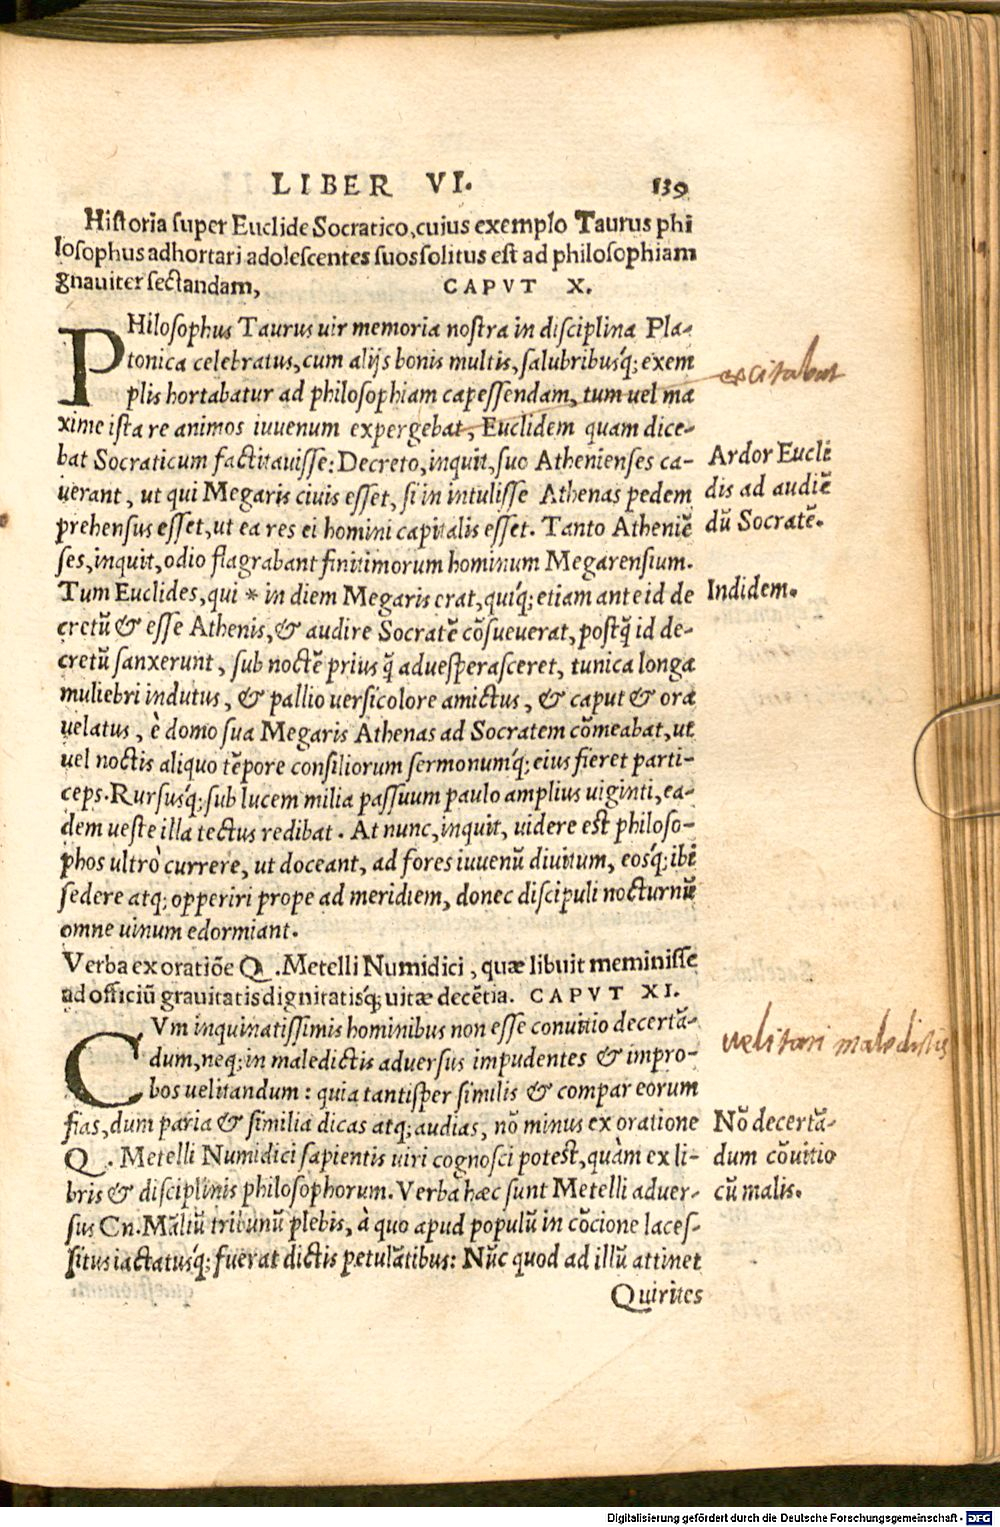 LIBER VI. 139
Historia super Euclide Socratico, cuius exemplo Taurus phi
losophus adhortari adolescentes suos solitus est ad philosophiam
gnauiter sectandam, CAPVT X.
PHilosophus Taurus uir memoria nostra in disciplina Pla-
tonica celebratus, cum alijs bonis multis, salubribusq́; exem
plis hortabatur ad philosophiam capessendam, tum uel ma
xime ista re animos iuuenum expergebat, Euclidem quam dice-
bat Socraticum factitauisse: Decreto, inquit, suo Athenienses ca-
uerant, ut qui Megaris ciuis esset, si in intulisse Athenas pedem
prehensus esset, ut ea res ei homini capitalis esset. Tanto Atheniē
ses, inquit, odio flagrabant finitimorum hominum Megarensium.
Tum Euclides, qui * in diem Megaris erat, quiq́; etiam ante id de
cretū & esse Athenis, & audire Socratē cōsueuerat, postq̄ id de-
cretū sanxerunt, sub noctē prius q̄ aduesperasceret, tunica longa
muliebri indutus, & pallio uersicolore amictus, & caput & ora
uelatus, è domo sua Megaris Athenas ad Socratem cōmeabat, ut
uel noctis aliquo tēpore consiliorum sermonumq́; eius fieret parti-
ceps. Rursusq́; sub lucem milia passuum paulo amplius uiginti, ea-
dem ueste illa tectus redibat. At nunc, inquit, uidere est philoso-
phos ultrò currere, ut doceant, ad fores iuuenū diuitum, eosq́; ibi
sedere atq; opperiri prope ad meridiem, donec discipuli nocturnū
omne uinum edormiant.
Verba ex oratiōe Q. Metelli Numidici, quæ libuit meminisse
ad officiū grauitatis dignitatisq́; uitæ decētia. CAPVT XI.
CVm inquinatissimis hominibus non esse conuitio decertā-
dum, neq; in maledictis aduersus impudentes & impro-
bos uelitandum: quia tantisper similis & compar eorum
fias, dum paria & similia dicas atq; audias, nō minus ex oratione
Q. Metelli Numidici sapientis uiri cognosci potest, quàm ex li-
bris & disciplinis philosophorum. Verba hæc sunt Metelli aduer-
sus Cn. Māliū tribunū plebis, à quo apud populū in cōcione laces-
situs iactatusq́; fuerat dictis petulātibus: Nūc quod ad illū attinet
Quirites
excitabat
Ardor Eucli
dis ad audiē
dū Socratē.
Indidem.
uelitari maledictis
Nō decertā-
dum cōuitio
cū malis.
Digitalisierung gefördert durch die Deutsche Forschungsgemeinschaft - DFG